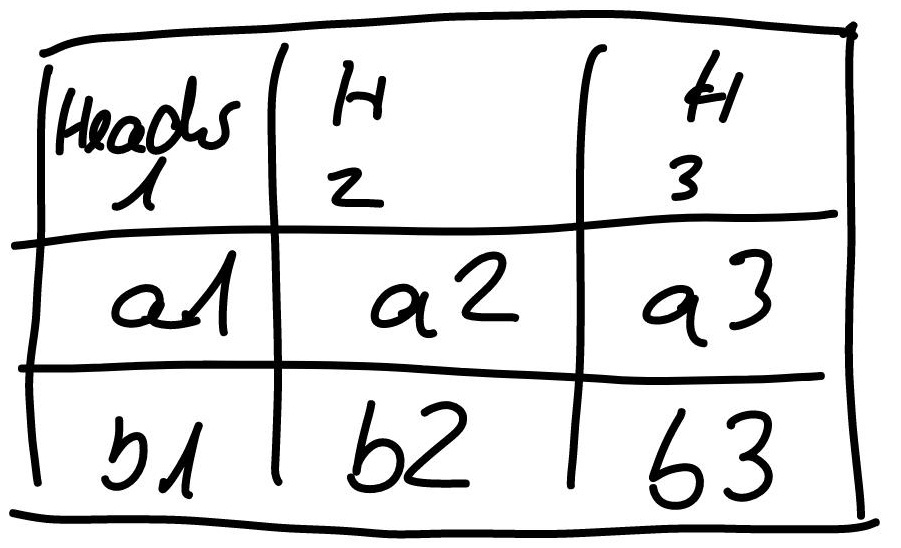 Heads H H
1 2 3
a1 a2 a3
b1 b2 b3